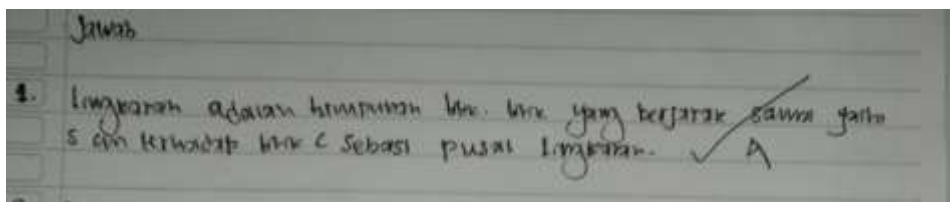 Jawab
1. Lingkaran adalah himpunan titik-titik yang berjarak sama yaitu
5 cm terhadap titik C sebagai pusat lingkaran. A